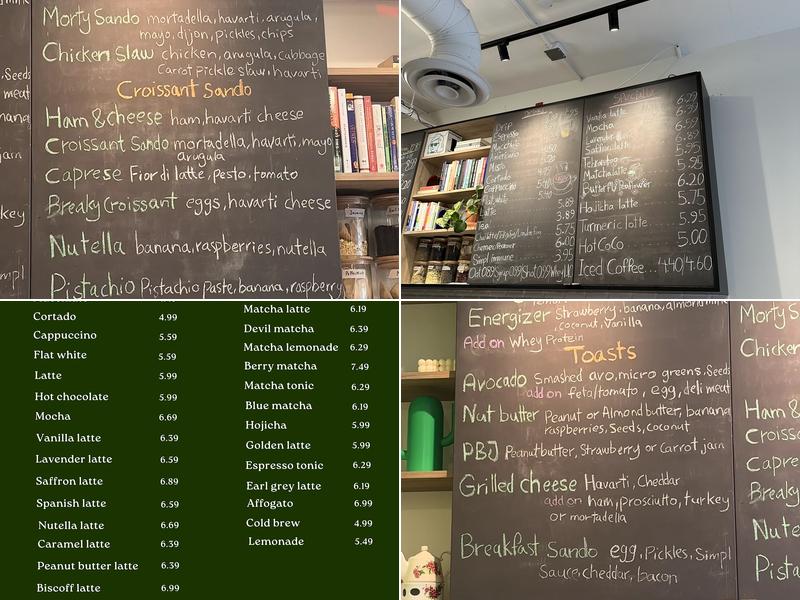 Morty Sando mortadella, havarti, arugula,
mayo, dijon, pickles, chips
Chicken Slaw chicken, arugula, cabbage
Carrot pickle slaw, havarti
Croissant Sando
Ham & cheese ham, havarti cheese
Croissant Sando mortadella, havarti, mayo
arugula
Caprese Fior di latte, pesto, tomato
Breaky Croissant eggs, havarti cheese
Nutella banana, raspberries, nutella
Pistachio Pistachio paste, banana, raspberry
Drip
Americano
Cortado
Cappuccino
Latte
Tea
5.89
3.89
5.75
6.00
3.95
Vanilla latte 6.29
Mocha
Lavender latte
Saffron latte 5.95
5.25
Matcha latte 5.95
6.20
Hojicha latte 5.75
Turmeric latte 5.95
Hot CoCo 5.00
Iced Coffee... 4.40/4.60
Cortado 4.99
Cappuccino 5.59
Flat white 5.59
Latte 5.99
Hot chocolate 5.99
Mocha 6.69
Vanilla latte 6.39
Lavender latte 6.59
Saffron latte 6.89
Spanish latte 6.59
Nutella latte 6.69
Caramel latte 6.39
Peanut butter latte 6.39
Biscoff latte 6.99
Matcha latte 6.19
Devil matcha 6.39
Matcha lemonade 6.29
Berry matcha 7.49
Matcha tonic 6.29
Blue matcha 6.19
Hojicha 5.99
Golden latte 5.99
Espresso tonic 6.29
Earl grey latte 6.19
Affogato 6.99
Cold brew 4.99
Lemonade 5.49
Energizer Strawberry, banana, almond milk
, coconut, Vanilla
Add on Whey Protein
Toasts
Avocado Smashed avo, micro greens, Seeds
add on feta/tomato, egg, deli meat
Nut butter Peanut or Almond butter, banana
raspberries, Seeds, coconut
PBJ Peanut butter, Strawberry or Carrot jam
Grilled cheese Havarti, Cheddar
add on ham, prosciutto, turkey
or mortadella
Breakfast Sando egg, Pickles, Simpl
Sauce, cheddar, bacon
Morty S
Chicken
Ham &
Croiss
Capre
Breaky
Nute
Pista